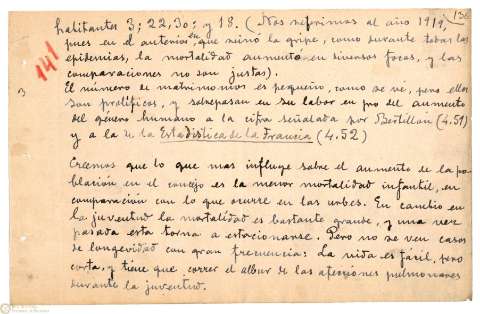 136
141
3
habitantes 3; 22,30; y 18. (Nos referimos al año 1919,
pues en el anterior, en que reinó la gripe, como durante todas las
epidemias, la mortalidad aumenta en diversos focos, y las
comparaciones no son justas).
El número de matrimonios es pequeño, como se ve, pero ellos
son prolíficos, y sobrepasan en su labor en pro del aumento
del género humano a la cifra señalada por Bertillon (4.51)
y a la de la Estadística de la Francia (4.52)
Creemos que lo que mas influye sobre el aumento de la po-
blación en el concejo es la menor mortalidad infantil, en
comparación con lo que ocurre en las urbes. En cambio en
la juventud la mortalidad es bastante grande, y una vez
pasada esta torna a estacionarse. Pero no se ven casos
de longevidad con gran frecuencia: La vida es fácil, pero
corta, y tiene que correr el albur de las afecciones pulmonares
durante la juventud.